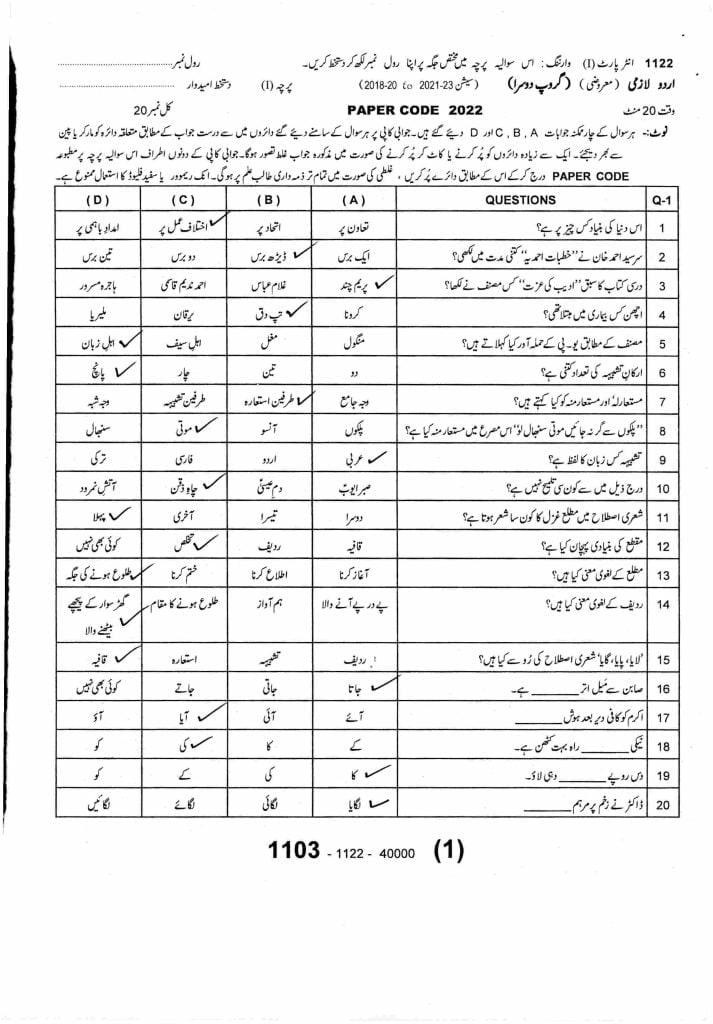 1122 انٹر پارٹ (I) وارننگ: اس سوالیہ پرچہ میں مختص جگہ پر اپنا رول نمبر لکھ کر دستخط کریں۔ رول نمبر
اردو لازمی (معروضی) (گروپ دوسرا) (سیشن 2021-23 to 2018-20) پرچہ (I) دستخط امیدوار
وقت 20 منٹ PAPER CODE 2022 کل نمبر 20
نوٹ:- ہر سوال کے چار ممکنہ جوابات A , B , C اور D دیئے گئے ہیں۔ جوابی کاپی پر ہر سوال کے سامنے دیئے گئے دائروں میں سے درست جواب کے مطابق متعلقہ دائرہ کو مارکر یا پین
سے بھر دیجئے۔ ایک سے زیادہ دائروں کو پُر کرنے یا کاٹ کر پُر کرنے کی صورت میں مذکورہ جواب غلط تصور ہوگا۔ جوابی کاپی کے دونوں اطراف اس سوالیہ پرچہ پر مطبوعہ
PAPER CODE درج کر کے اس کے مطابق دائرے پُر کریں ، غلطی کی صورت میں تمام تر ذمہ داری طالب علم پر ہوگی۔ انک ریموور یا سفید فلیوڈ کا استعمال ممنوع ہے۔
Q-1 QUESTIONS (A) (B) (C) (D)
1 اس دنیا کی بنیاد کس چیز پر ہے؟ تعاون پر اتحاد پر اختلاف عمل پر امداد باہمی پر
2 سرسید احمد خان نے "خطبات احمدیہ" کتنی مدت میں لکھی؟ ایک برس ڈیڑھ برس دو برس تین برس
3 درسی کتاب کا سبق "ادیب کی عزت" کس مصنف نے لکھا؟ پریم چند غلام عباس احمد ندیم قاسمی ہاجرہ مسرور
4 اچھن کس بیماری میں مبتلا تھی؟ کرونا تپ دق یرقان ملیریا
5 مصنف کے مطابق یو۔پی کے حملہ آور کیا کہلاتے ہیں؟ منگول مغل اہلِ سیف اہلِ زبان
6 ارکانِ تشبیہہ کی تعداد کتنی ہے؟ دو تین چار پانچ
7 مستعار لہُ اور مستعار منہ کو کیا کہتے ہیں؟ وجہ جامع طرفین استعارہ طرفین تشبیہہ وجہ شبہ
8 "پلکوں سے گر نہ جائیں موتی سنبھال لو" اس مصرع میں مستعار منہ کیا ہے؟ پلکوں آنسو موتی سنبھال
9 تشبیہہ کس زبان کا لفظ ہے؟ عربی اردو فارسی ترکی
10 درج ذیل میں سے کون سی تلمیح نہیں ہے؟ صبرِ ایوبؑ دمِ عیسیٰؑ چاہِ ذقن آتشِ نمرود
11 شعری اصطلاح میں مطلع غزل کا کون سا شعر ہوتا ہے؟ دوسرا تیسرا آخری پہلا
12 مقطع کی بنیادی پہچان کیا ہے؟ قافیہ ردیف تخلص کوئی بھی نہیں
13 مطلع کے لغوی معنی کیا ہیں؟ آغاز کرنا اطلاع کرنا ختم کرنا طلوع ہونے کی جگہ
14 ردیف کے لغوی معنی کیا ہیں؟ پے در پے آنے والا ہم آواز طلوع ہونے کا مقام گھڑ سوار کے پیچھے
بیٹھنے والا
15 'لایا، پایا، گایا' شعری اصطلاح کی رُو سے کیا ہیں؟ ردیف تشبیہہ استعارہ قافیہ
16 صابن سے میل اتر ________ ہے۔ جاتا جاتی جاتے کوئی بھی نہیں
17 اکرم کو کافی دیر بعد ہوش ________ آئے آئی آیا آؤ
18 نیکی ________ راہ بہت کٹھن ہے۔ کے کا کی کو
19 دس روپے ________ دہی لاؤ۔ کا کی کے کو
20 ڈاکٹر نے زخم پر مرہم ________ لگایا لگائی لگائے لگائیں
1103 - 1122 - 40000 (1)